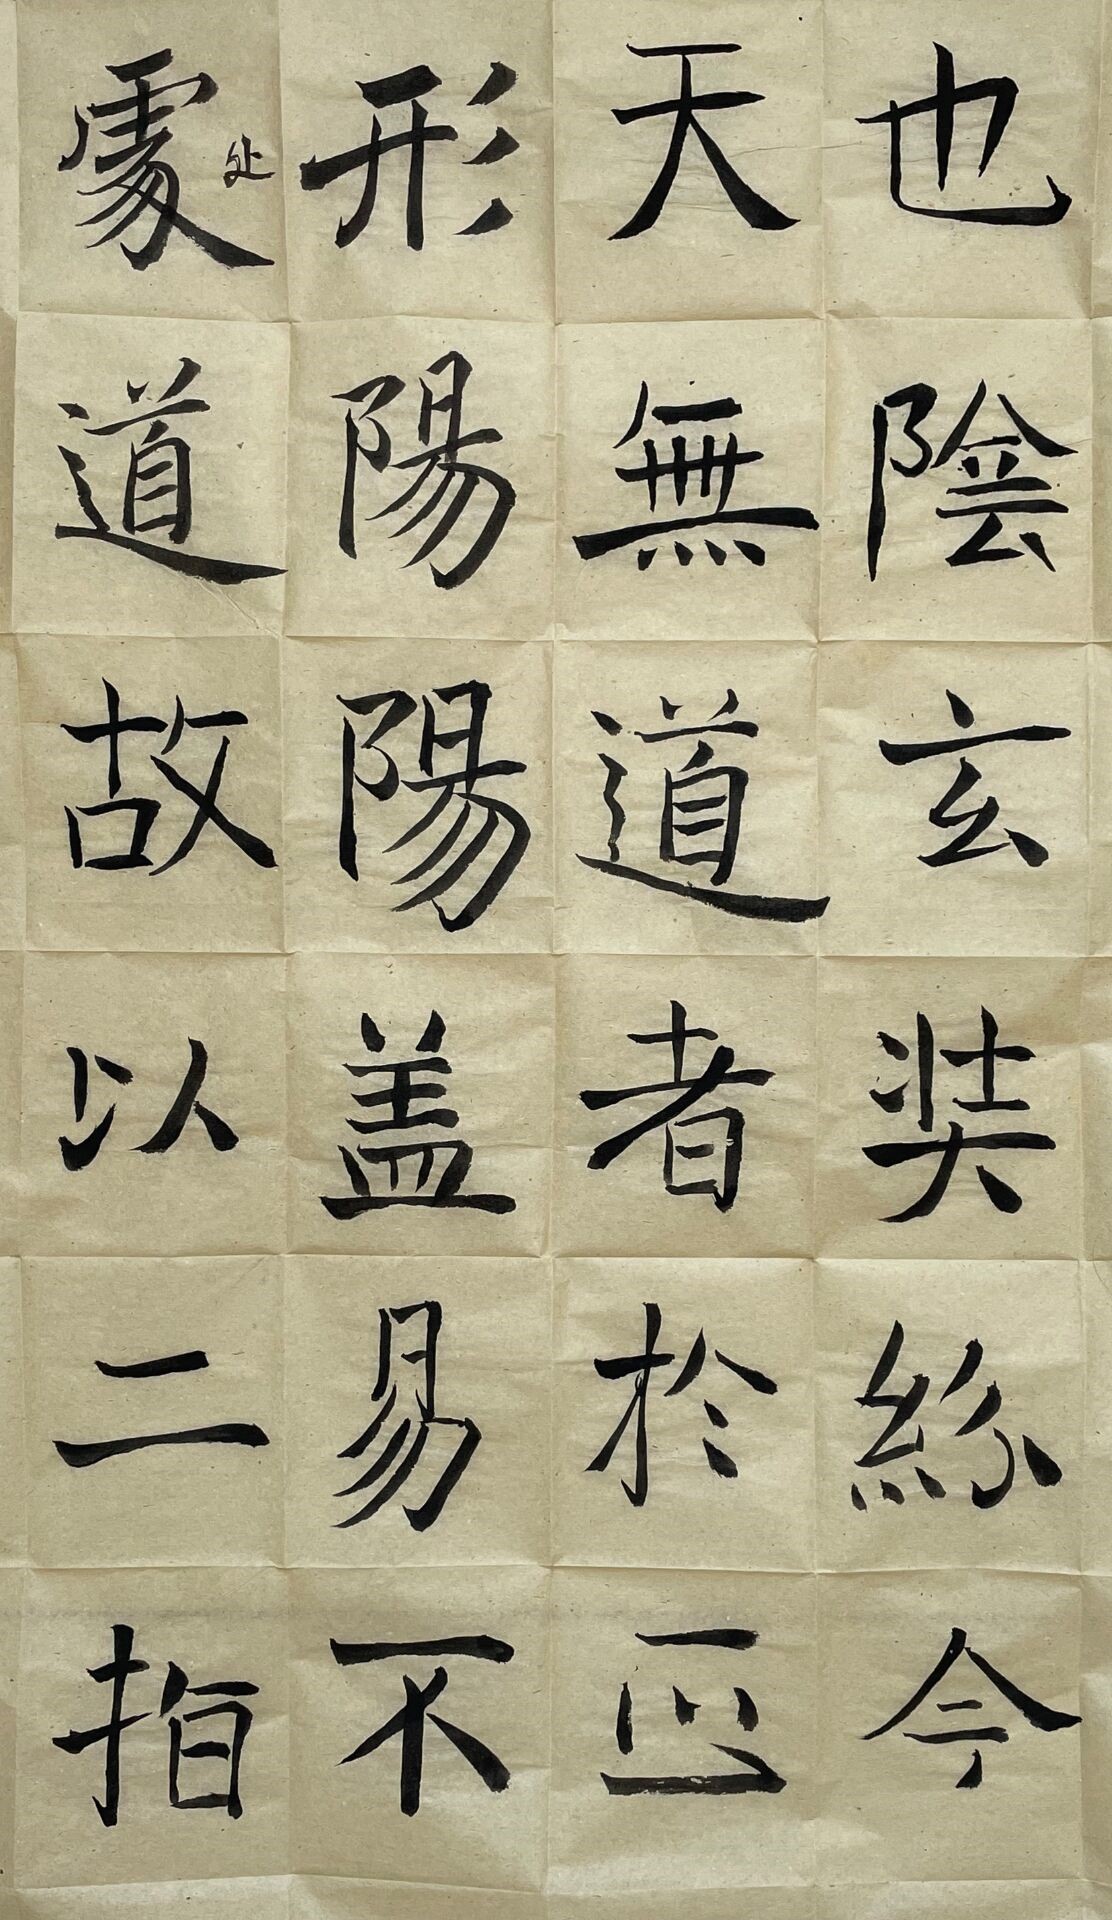 也陰玄奘絲今
天無道者於
形陽陽盖易不
處道故以二指
处